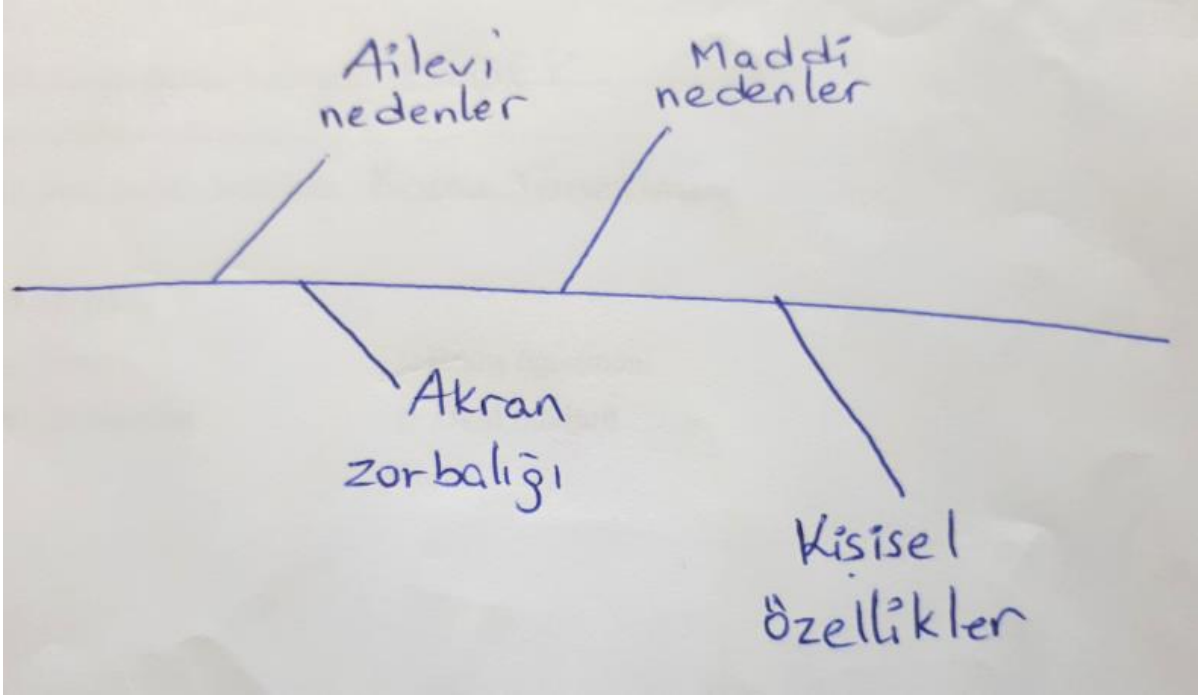 Ailevi
nedenler
Maddi
nedenler
Akran
zorbalığı
Kişisel
özellikler